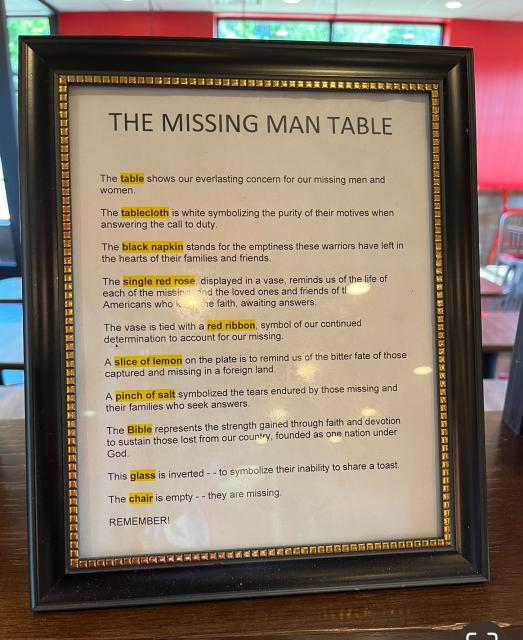 THE MISSING MAN TABLE
The table shows our everlasting concern for our missing men and
women.
The tablecloth is white symbolizing the purity of their motives when
answering the call to duty.
The black napkin stands for the emptiness these warriors have left in
the hearts of their families and friends.
The single red rose, displayed in a vase, reminds us of the life of
each of the missing, and the loved ones and friends of
Americans who the faith, awaiting answers.
The vase is tied with a red ribbon, symbol of our continued
determination to account for our missing.
A slice of lemon on the plate is to remind us of the bitter fate of those
captured and missing in a foreign land.
A pinch of salt symbolized the tears endured by those missing and
their families who seek answers.
The Bible represents the strength gained through faith and devotion
to sustain those lost from our country, founded as one nation under
God.
This glass is inverted - - to symbolize their inability to share a toast.
The chair is empty - - they are missing.
REMEMBER!